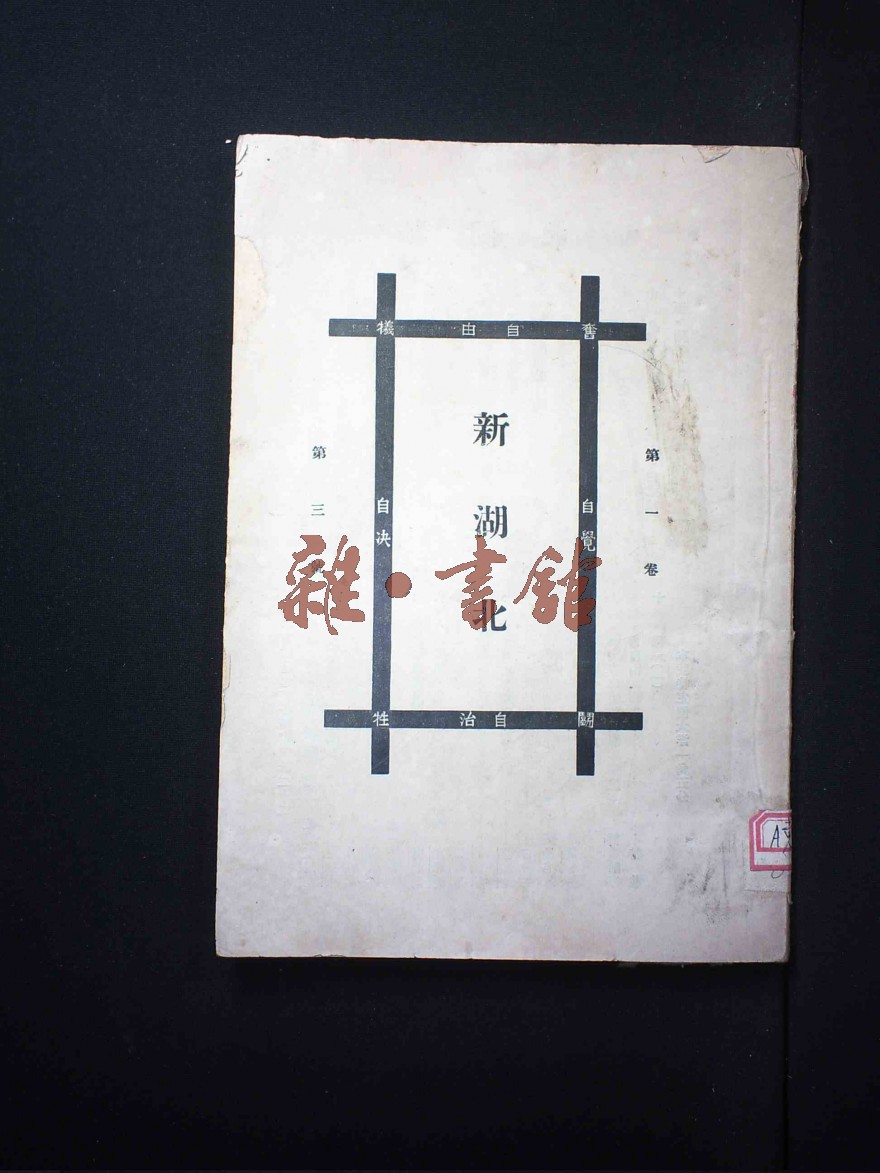 第一卷
奮 自由 犧
自覺
新湖北
自决
鬭 自治 牲
第三號
雜·書館